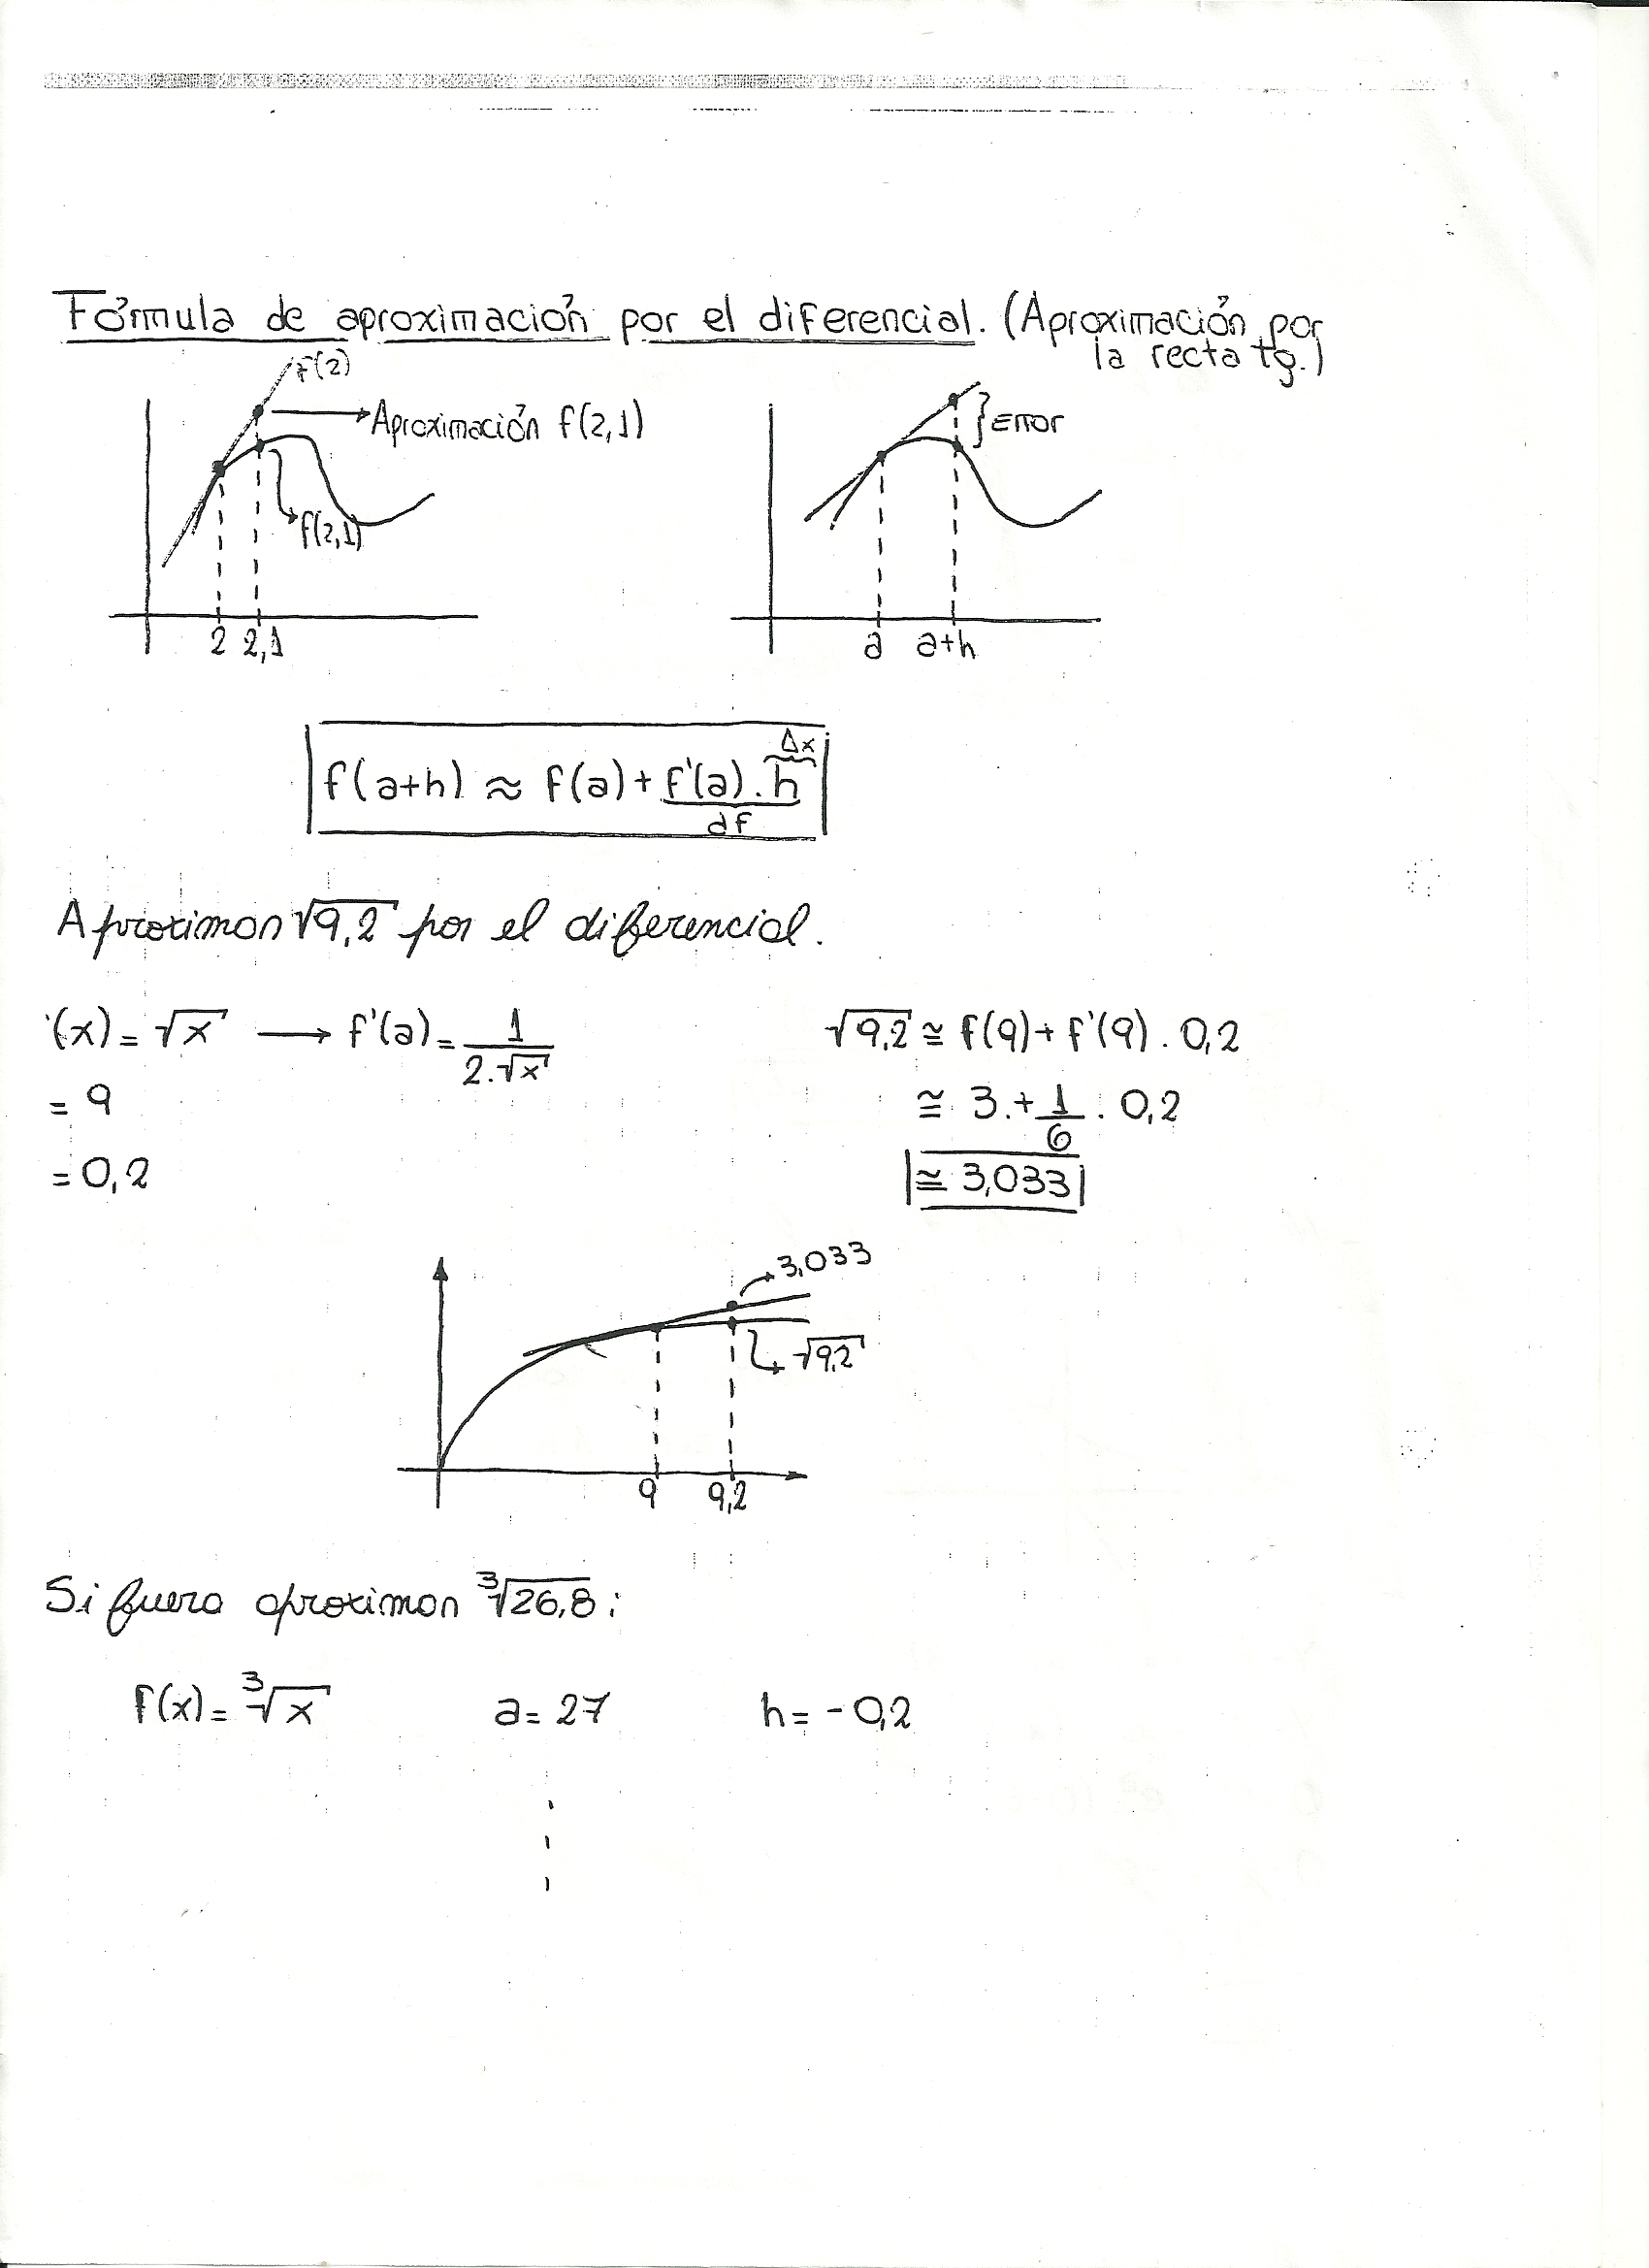 Fórmula de aproximación por el diferencial. (Aproximación por
la recta tg.)
f(2)
Aproximación f(2,1)
f(2,1)
2 2,1
Error
a a+h
Δx
f(a+h) ≈ f(a) + f'(a) . h
df
Aproximar √9,2 por el diferencial.
(x) = √x ⟶ f'(a) = 1/(2.√x)
= 9
= 0,2
√9,2 ≅ f(9) + f'(9) . 0,2
≅ 3 + 1/6 . 0,2
≅ 3,033
3,033
√9,2
9 9,2
Si fuera aproximar ∛26,8:
f(x) = ∛x a = 27 h = -0,2